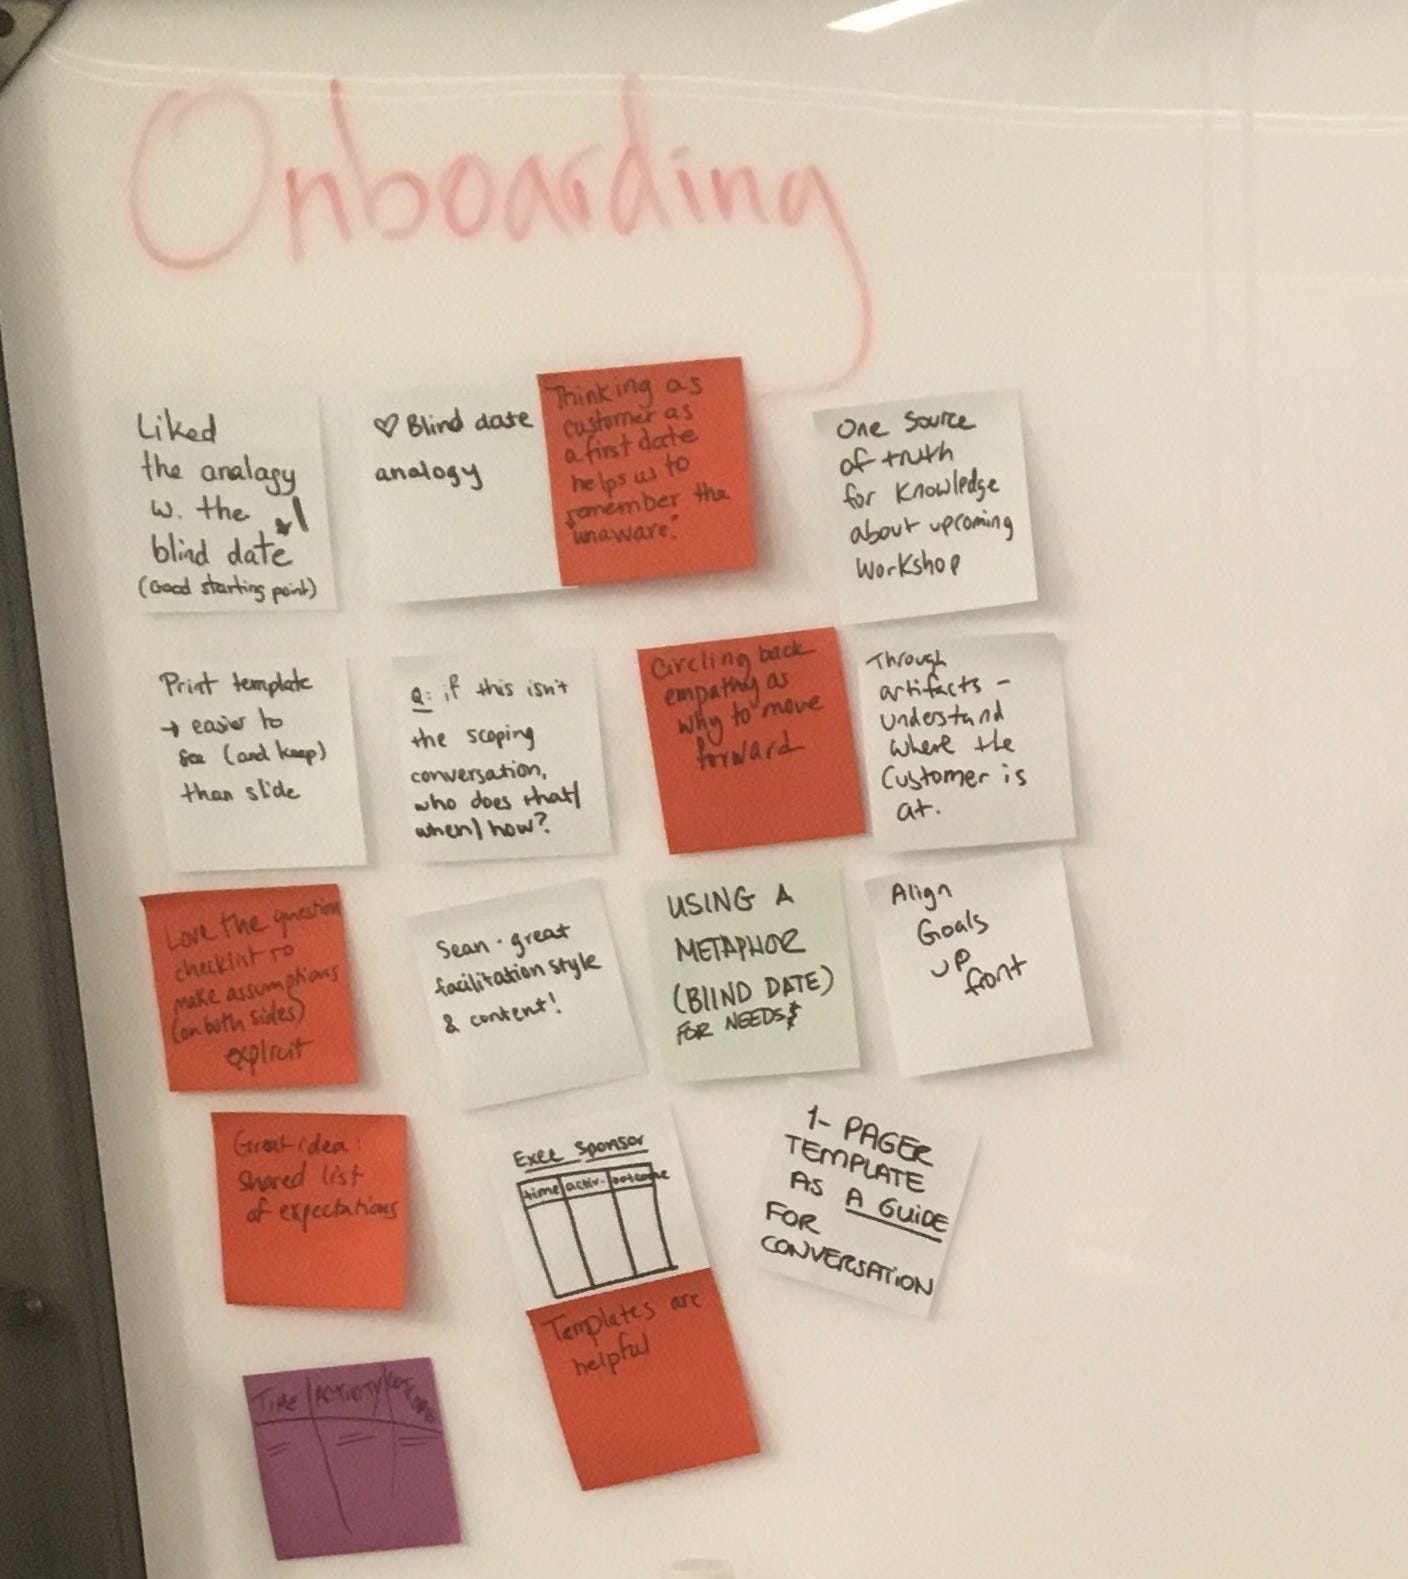 Onboarding
Liked
the analagy
w. the
blind date
(Good starting point)
♡ Blind date
analogy
Thinking as
customer as
a first date
helps us to
remember the
"unaware".
One Source
of truth
for Knowledge
about upcoming
Workshop
Print template
→ easier to
see (and keep)
than slide
Q: if this isn't
the scoping
conversation,
who does that/
when/how?
Circling back
empathy as
why to move
forward
Through
artifacts -
understand
where the
Customer is
at.
Love the question
checklist to
make assumptions
(on both sides)
explicit
Sean - great
facilitation style
& content!
USING A
METAPHOR
(BLIND DATE)
FOR NEEDS
Align
Goals
up
front
Great idea:
Shared list
of expectations
Exec Sponsor
time activ. outcome
1- PAGER
TEMPLATE
AS A GUIDE
FOR
CONVERSATION
Templates are
helpful
TIME ACTIVITY